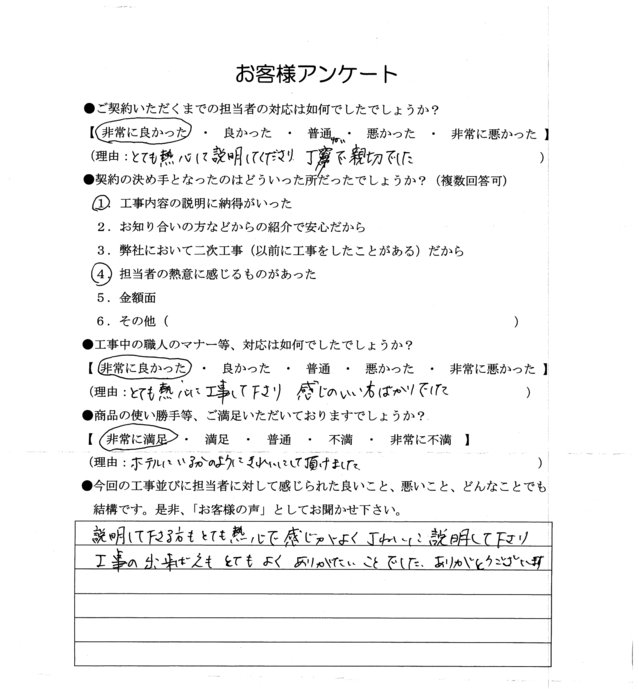 お客様アンケート
●ご契約いただくまでの担当者の対応は如何でしたでしょうか？
【 非常に良かった ・ 良かった ・ 普通 ・ 悪かった ・ 非常に悪かった 】
(理由：とても熱心して説明してくださり 丁寧で親切でした )
●契約の決め手となったのはどういった所だったでしょうか？（複数回答可）
1．工事内容の説明に納得がいった
2．お知り合いの方などからの紹介で安心だから
3．弊社において二次工事（以前に工事をしたことがある）だから
4．担当者の熱意に感じるものがあった
5．金額面
6．その他（ ）
●工事中の職人のマナー等、対応は如何でしたでしょうか？
【 非常に良かった ・ 良かった ・ 普通 ・ 悪かった ・ 非常に悪かった 】
(理由：とても熱心に工事して下さり 感じのいい方ばかりでした )
●商品の使い勝手等、ご満足いただいておりますでしょうか？
【 非常に満足 ・ 満足 ・ 普通 ・ 不満 ・ 非常に不満 】
(理由：ホテルにいるかのようにきれいにして頂けました )
●今回の工事並びに担当者に対して感じられた良いこと、悪いこと、どんなことでも
結構です。是非、「お客様の声」としてお聞かせ下さい。
説明して下さる方もとても熱心で感じがよく ていねいに説明して下さり
工事の出来ばえもとてもよくありがたいことでした。ありがとうございます